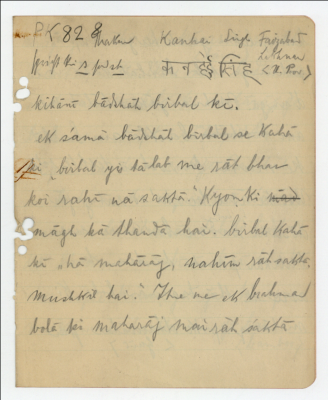 PK 828
Thakur Kanhai Singh Faizabad
कनहई सिंह
(U. Prov.)
kihānī bādshāh birbal kī.
ek samā bādshāh birbal se kahā
ki „birbal yis tālāb me rāt bhar
koi rahī nā saktā." Kyon ki
māgh kā thandā hai. birbal kahā
ki „hā mahārāj, nahīn rāh saktā,
mushkil hai." Itne me ek brahman
bolā ki mahārāj mai rāh saktā